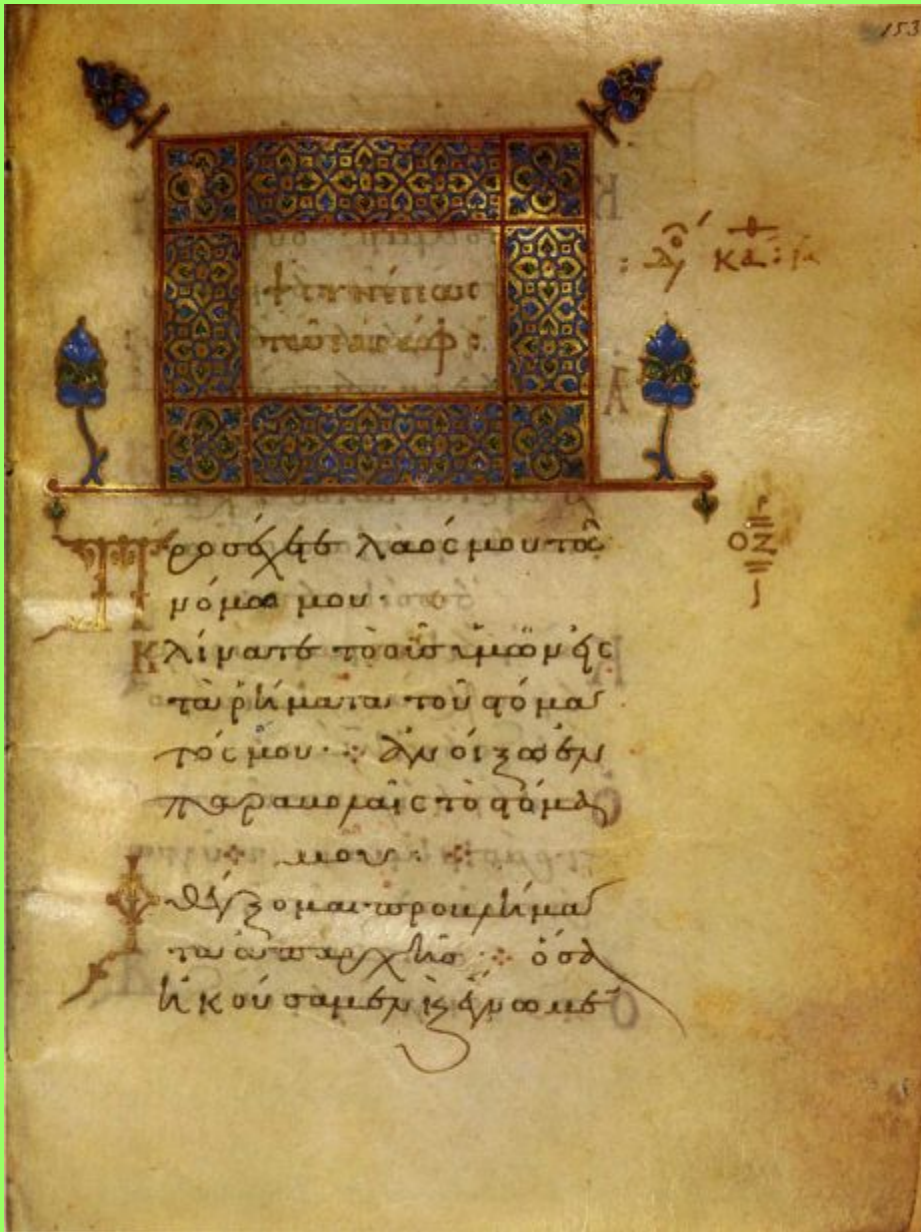 153
οζ
Προσέχετε λαός μου τῶ
νόμω μου·
Κλίνατε τὸ οὖς ὑμῶν εἰς
τὰ ῥήματα τοῦ στόμα
τός μου· ἀνοίξω ἐν
παραβολαῖς τὸ στόμα
μου·
Φθέγξομαι προβλήμα
τα ἀπαρχῆς· ὅσα
ἠκούσαμεν κ ἔγνωμε